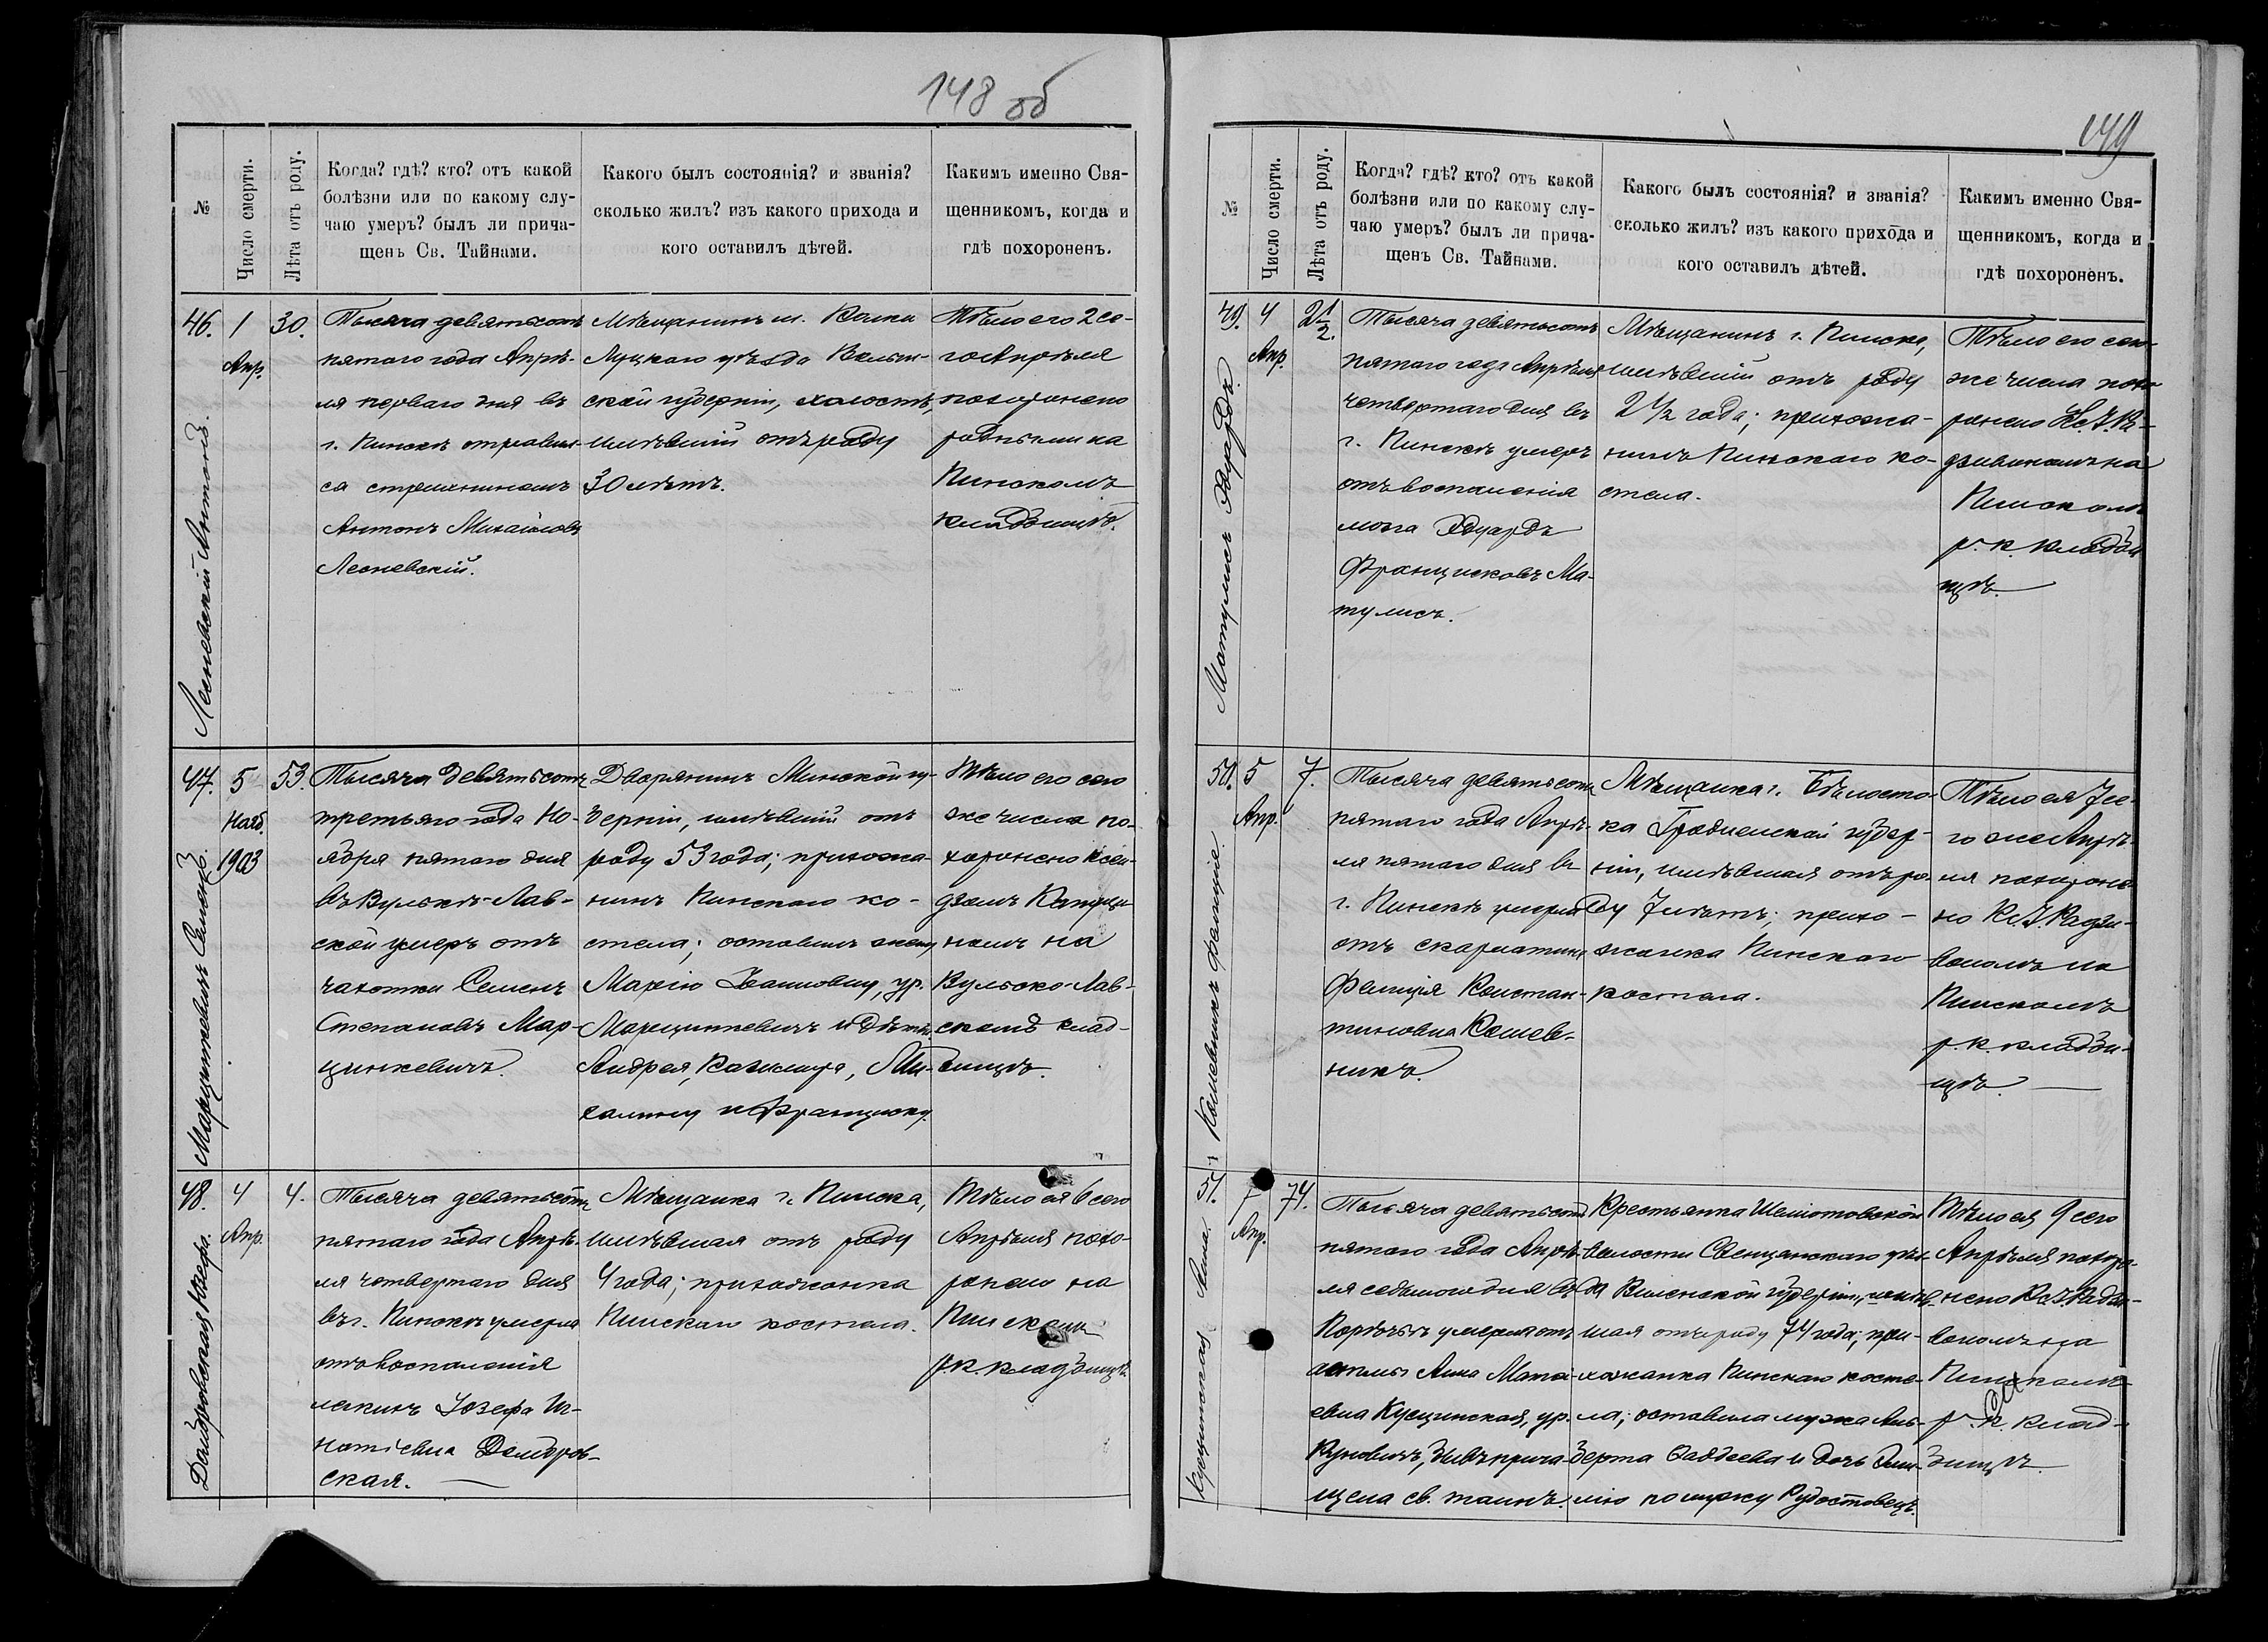 148 об
№
Число смерти.
Лѣта отъ роду.
Когда? гдѣ? кто? отъ какой
болѣзни или по какому слу-
чаю умеръ? былъ ли прича-
щенъ Св. Тайнами.
Какого былъ состоянія? и званія?
сколько жилъ? изъ какого прихода и
кого оставилъ дѣтей.
Какимъ именно Свя-
щенникомъ, когда и
гдѣ похороненъ.
46.
Лесневскій Антонъ.
1
Апр.
30.
Тысяча девятьсотъ
пятаго года Апрѣ-
ля перваго дня въ
г. Пинскѣ отравил-
ся стрихниномъ
Антонъ Михайловъ
Лесневскій.
Мѣщанинъ м. Колки
Луцкаго уѣзда Волын-
ской губерніи, холостъ,
имѣвшій отъ роду
30 лѣтъ.
Тѣло его 2 се-
го Апрѣля
похоронено
родными на
Пинскомъ
кладбищѣ.
47.
Марцинкевичъ Семенъ.
5
Нояб.
1903
53.
Тысяча девятьсотъ
третьяго года Но-
ября пятаго дня
въ Вулькѣ-Лав-
ской умеръ отъ
чахотки Семенъ
Степановъ Мар-
цинкевичъ.
Дворянинъ Минской гу-
берніи, имѣвшій отъ
роду 53 года; прихожа-
нинъ Пинскаго ко-
стела; оставилъ жену
Марію Ивановну, ур.
Марцинкевичъ и дѣтей
Андрея, Казимира, Ми-
халину и Францишку.
Тѣло его сего
же числа по-
хоронено Ксен-
дзомъ
на
Вулько-Лав-
скомъ клад-
бищѣ.
48.
Домбровская Юзефа.
4
Апр.
4.
Тысяча девятьсотъ
пятаго года Апрѣ-
ля четвертаго дня
въ г. Пинскѣ умерла
отъ воспаленія
легкихъ Юзефа Иг-
натіевна Домбров-
ская.
Мѣщанка г. Пинска,
имѣвшая отъ роду
4 года; прихожанка
Пинскаго костела.
Тѣло ея 6 сего
Апрѣля похо-
ронено на
Пинскомъ
р. к. кладбищѣ.
149
№
Число смерти.
Лѣта отъ роду.
Когда? гдѣ? кто? отъ какой
болѣзни или по какому слу-
чаю умеръ? былъ ли прича-
щенъ Св. Тайнами.
Какого былъ состоянія? и званія?
сколько жилъ? изъ какого прихода и
кого оставилъ дѣтей.
Какимъ именно Свя-
щенникомъ, когда и
гдѣ похороненъ.
49.
Матулисъ Эдуардъ.
4
Апр.
2 1/2.
Тысяча девятьсотъ
пятаго года Апрѣля
четвертаго дня въ
г. Пинскѣ умеръ
отъ воспаленія
мозга Эдуардъ
Францисковъ Ма-
тулисъ.
Мѣщанинъ г. Пинска,
имѣвшій отъ роду
2 1/2 года; прихожа-
нинъ Пинскаго ко-
стела.
Тѣло его сего
же числа похо
ронено Кс. І. Ра-
дзивономъ на
Пинскомъ
р. к. кладби
щѣ.
50.
Колевникъ Фелиція.
5
Апр.
7.
Тысяча девятьсотъ
пятаго года Апрѣ-
ля пятаго дня въ
г. Пинскѣ умерла
отъ скарлатины
Фелиція Констан-
тиновна Колев-
никъ.
Мѣщанка г. Бѣлосто-
ка Гродненской губер-
ніи, имѣвшая отъ ро-
ду 7 лѣтъ; прихо-
жанка Пинскаго
костела.
Тѣло ея 7 се-
го же Апрѣ-
ля похороне-
но Кс. І. Радзи-
вономъ на
Пинскомъ
р. к. кладби-
щѣ.
51.
Кусцинская Анна.
7
Апр.
74.
Тысяча девятьсотъ
пятаго года Апрѣ-
ля седьмого дня въ
умерла отъ
астмы Анна Матѳі-
евна Кусцинская, ур.
бывъ прича-
щена св. таинъ.
Крестьянка Шеметовской
волости Свенцянскаго уѣз-
да Виленской губерніи, имѣв-
шая отъ роду 74 года; при-
хожанка Пинскаго косте-
ла; оставила мужа Аль-
берта Ѳаддеева и дочь Эми-
лію по мужу
Тѣло ея 9 сего
Апрѣля похоро-
нено Кс. І. Радзи-
вономъ на
Пинскомъ
р. к. клад-
бищѣ.